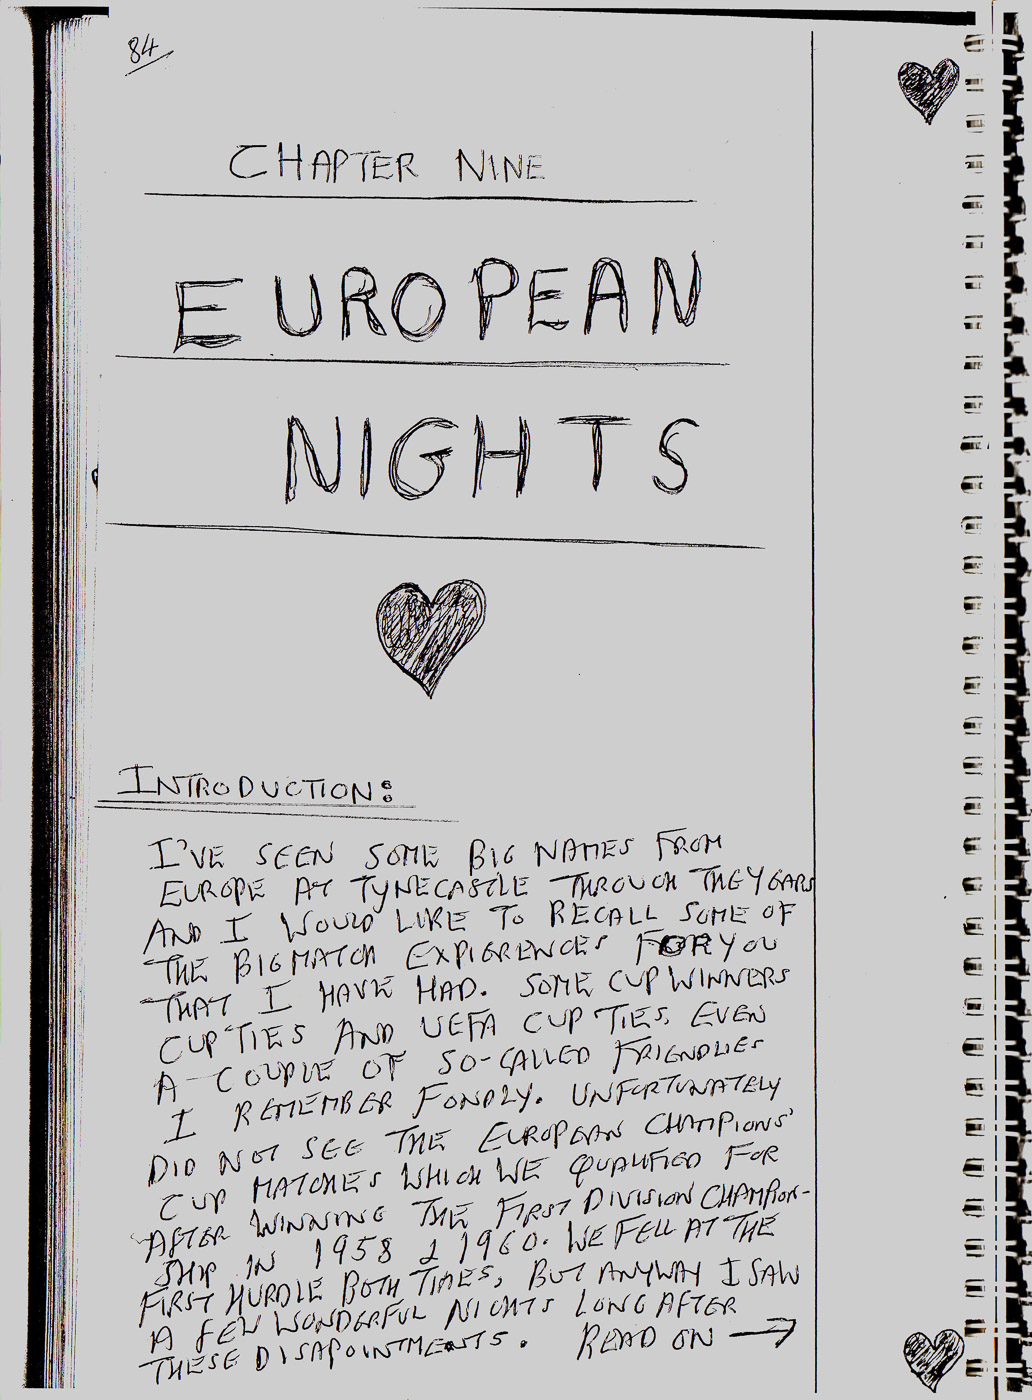 84
CHAPTER NINE
EUROPEAN
NIGHTS
INTRODUCTION:
I'VE SEEN SOME BIG NAMES FROM
EUROPE AT TYNECASTLE THROUGH THE YEARS
AND I WOULD LIKE TO RECALL SOME OF
THE BIG MATCH EXPIERENCES FOR YOU
THAT I HAVE HAD. SOME CUP WINNERS
CUP TIES AND UEFA CUP TIES, EVEN
A COUPLE OF SO-CALLED FRIENDLIES
I REMEMBER FONDLY. UNFORTUNATELY
DID NOT SEE THE EUROPEAN CHAMPIONS'
CUP MATCHES WHICH WE QUALIFIED FOR
AFTER WINNING THE FIRST DIVISION CHAMPION-
SHIP IN 1958 & 1960. WE FELL AT THE
FIRST HURDLE BOTH TIMES, BUT ANYWAY I SAW
A FEW WONDERFUL NIGHTS LONG AFTER
THESE DISAPOINTMENTS. READ ON →